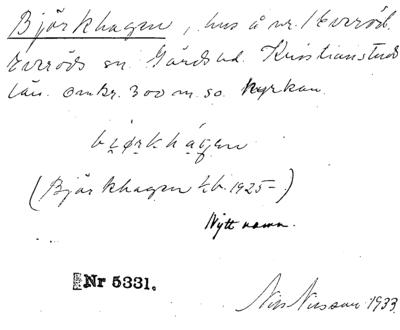 Björkhagen, hus å nr. 1 Everöd,
Everöds sn. Gärds hd. Kristianstads
län. omkr. 300 m. so. kyrkan.
bjørkhagen
(Björkhagen kb. 1925-)
Nytt namn.
Nr 5331.
Nils Nilsson 1933.